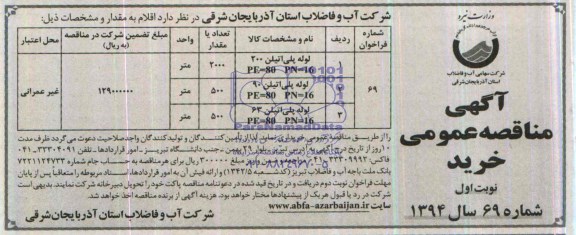 وزارت نیرو
شرکت سهامی آب و فاضلاب
استان آذربایجان شرقی
آگهی
مناقصه عمومی
خرید
نوبت اول
شماره ۶۹ سال ۱۳۹۴
شرکت آب و فاضلاب استان آذربایجان شرقی در نظر دارد اقلام به مقدار و مشخصات ذیل:
شماره فراخوان ردیف نام و مشخصات کالا تعداد یا مقدار واحد مبلغ تضمین شرکت در مناقصه (به ریال) محل اعتبار
۶۹ ۱ لوله پلی اتیلن ۲۰۰ PE=80 PN=16 ۲۰۰۰ متر ۱۲۹۰۰۰۰۰۰ غیر عمرانی
۲ لوله پلی اتیلن ۹۰ PE=80 PN=16 ۵۰۰ متر
۳ لوله پلی اتیلن ۶۳ PE=80 PN=16 ۵۰۰ متر
را از طریق مناقصه عمومی خریداری نماید لذا از تأمین کنندگان و تولید کنندگان واجد صلاحیت دعوت می گردد ظرف مدت
۱۰ روز از تاریخ درج آگهی به آدرس تبریز بلوار ۲۹ بهمن جنب دانشگاه تبریز - امور قراردادها - تلفن
مراجعه و ضمن واریز مبلغ ۳۰۰۰۰۰ ریال برای هر مناقصه به حساب جام شماره ۷۲۲۱۱۲۴۷۳۳
بانک ملت باجه آب و فاضلاب تبریز (کد شعبه ۱۳۴۲/۵) و ارائه فیش آن به امور قراردادها، اسناد مربوطه را متعاقباً پس از پایان
مهلت فراخوان نوبت دوم دریافت و در تاریخ قید شده در دعوتنامه مناقصه پاکت خود را تحویل دبیرخانه شرکت نمایند. بدیهی است
شرکت در رد یا قبول هر یک از پیشنهادها مختار خواهد بود. هزینه آگهی از برنده مناقصه اخذ خواهد شد.
سایت www.abfa-azarbaijan.ir
شرکت آب و فاضلاب استان آذربایجان شرقی
ParsNamadData